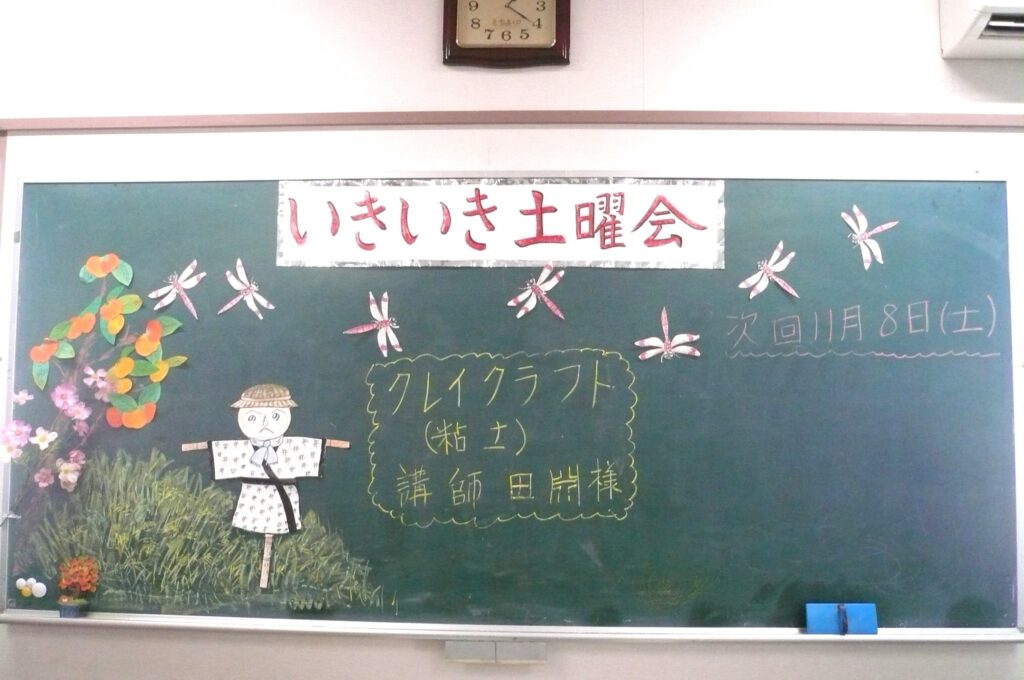 9 3
8 4
7 6 5
いきいき土曜会
次回11月8日(土)
クレイクラフト
(粘土)
講師田淵様